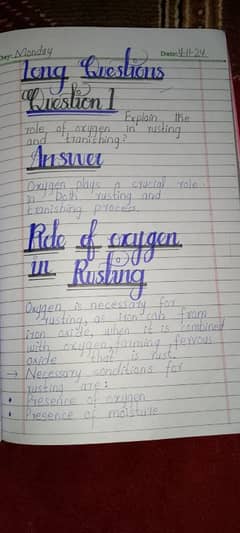 Day: Monday
Date: 4-11-24
Long Questions
Question 1
Explain the
role of oxygen in rusting
and tranishing?
Answer
Oxygen plays a crucial role
in both rusting and
tranishing process.
Role of oxygen
in Rusting
Oxygen is necessary for
rusting, as iron can from
iron oxide, when it is combined
with oxygen, farming ferrous
oxide that is rust.
→ Necessary conditions for
rusting are:
• Presence of oxygen
• Presence of moisture